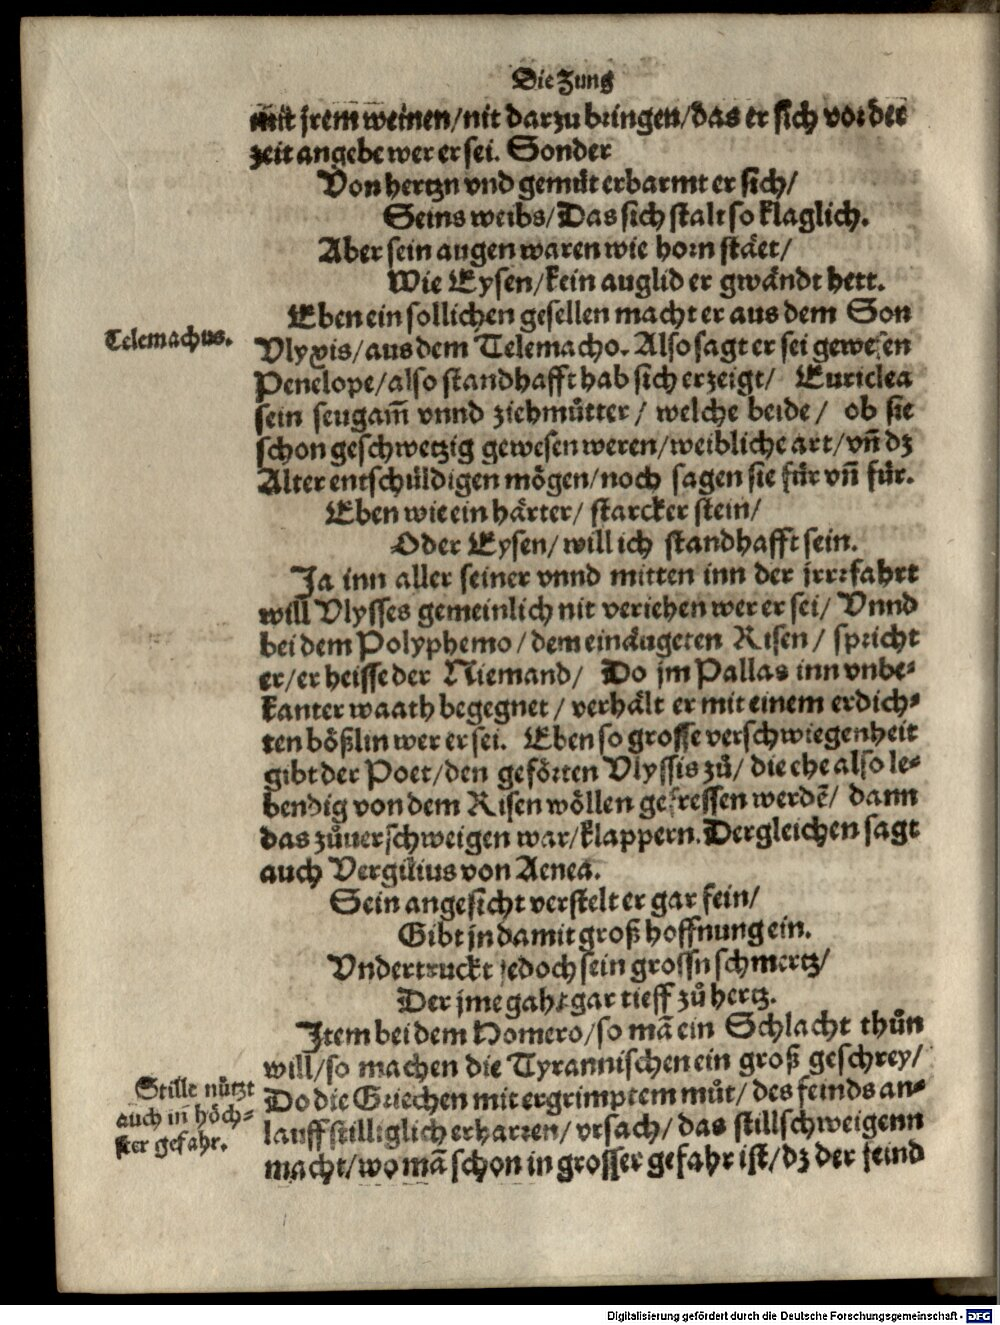 Die Zung
mit jrem weinen/nit darzu bringen/das er sich vor der
zeit angebe wer er sei. Sonder
Von hertzn vnd gemüt erbarmt er sich/
Seins weibs/Das sich stalt so klaglich.
Aber sein augen waren wie horn stäet/
Wie Eysen/kein auglid er gwändt hett.
Eben ein sollichen gesellen macht er aus dem Son
Telemachus.
Vlyxis/aus dem Telemacho. Also sagt er sei gewesen
Penelope/also standhafft hab sich erzeigt/ Euriclea
sein seugam̄ vnnd ziehmůtter/ welche beide/ ob sie
schon geschwetzig gewesen weren/weibliche art/vn̄ dz
Alter entschůldigen mögen/noch sagen sie für vn̄ für.
Eben wie ein härter/ starcker stein/
Oder Eysen/ will ich standhafft sein.
Ja inn aller seiner vnnd mitten inn der jrrfahrt
will Vlysses gemeinlich nit veriehen wer er sei/ Vnnd
bei dem Polyphemo/ dem einäugeten Risen/ spricht
er/er heisse der Niemand/ Do jm Pallas inn vnbe⸗
kanter waath begegnet/ verhält er mit einem erdich⸗
ten bößlin wer er sei. Eben so grosse verschwiegenheit
gibt der Poet/den geförten Vlyssis zů/ die ehe also le⸗
bendig von dem Risen wöllen gefressen werdē/ dann
das zůuerschweigen war/klappern. Dergleichen sagt
auch Vergilius von Aenea.
Sein angesicht verstelt er gar fein/
Gibt jn damit groß hoffnung ein.
Vndertruckt jedoch sein grossn schmertz/
Der jme gaht gar tieff zů hertz.
Item bei dem Homero/so mā ein Schlacht thůn
will/so machen die Tyrannischen ein groß geschrey/
Stille nützt
auch in höch⸗
ster gefahr.
Do die Griechen mit ergrimptem můt/ des feinds an⸗
lauff stilliglich erharren/ vrsach/ das stillschweigenn
macht/wo mā schon in grosser gefahr ist/dz der feind
Digitalisierung gefördert durch die Deutsche Forschungsgemeinschaft - DFG